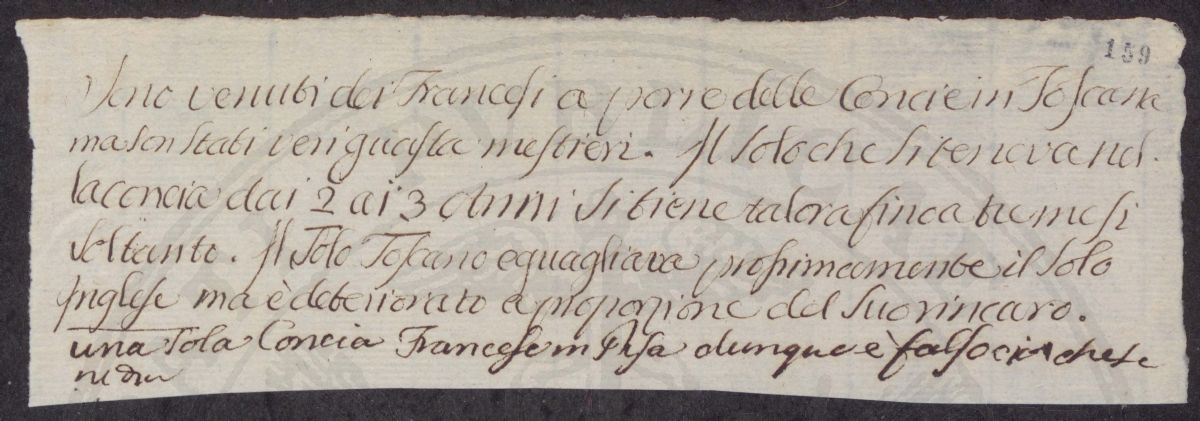 159
Sono venuti dei Francesi a porre delle Concie in Toscana
ma son stati veri guasta mestieri. Il solo che si teneva nel-
la concia dai 2 ai 3 Anni si tiene talora fino a tre mesi
soltanto. Il Solo Toscano equagliava prossimamente il Solo
Inglese ma è deteriorato a proporzione del suo rincaro.
una sola Concia Francese in Pisa dunque è falso ciò che se
ne dice